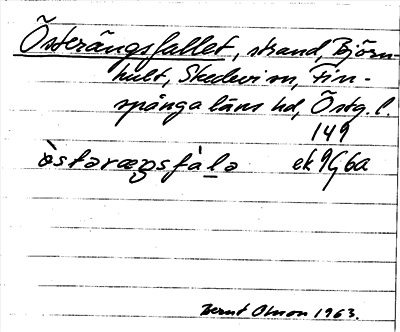 Österängsfallet, strand, Björn-
hult, Skedevi sn, Fin-
spånga läns hd, Östg. l.
149
òstəræŋsfàlə ek 9G6a
Bernt Olsson 1963.